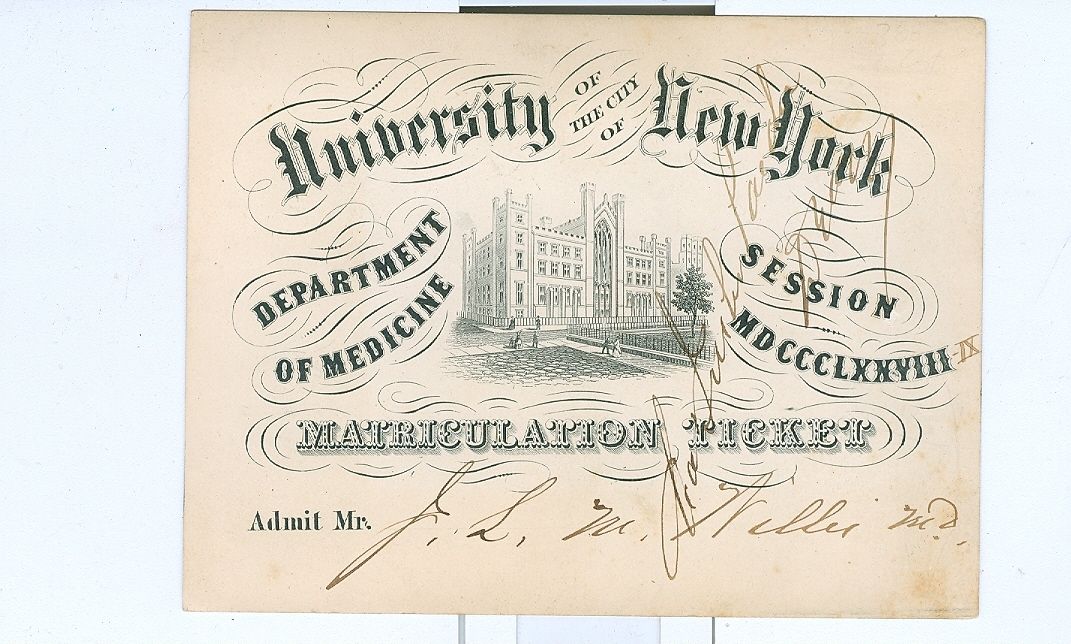 University OF THE CITY OF New York
DEPARTMENT OF MEDICINE
SESSION MDCCCLXXVIII-IX
MATRICULATION TICKET
Admit Mr. J. L. M. Willis M.D.